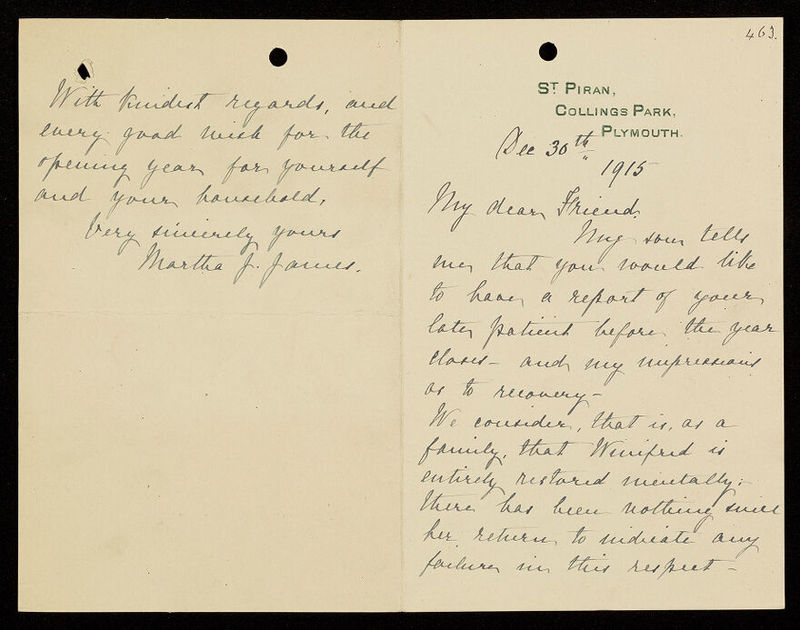 463.
St PIRAN,
COLLINGS PARK,
PLYMOUTH.
Dec 30th
1915
My dear Friend,
My son tells
me that you would like
to have a report of your
late patient before the year
closes – and my impressions
as to recovery –
We consider, that is, as a
family, that Winifred is
entirely restored mentally;
there has been nothing since
her return to indicate any
failure in this respect –
With kindest regards, and
every good wish for the
opening year for yourself
and your household,
Very sincerely yours
Martha J. James.